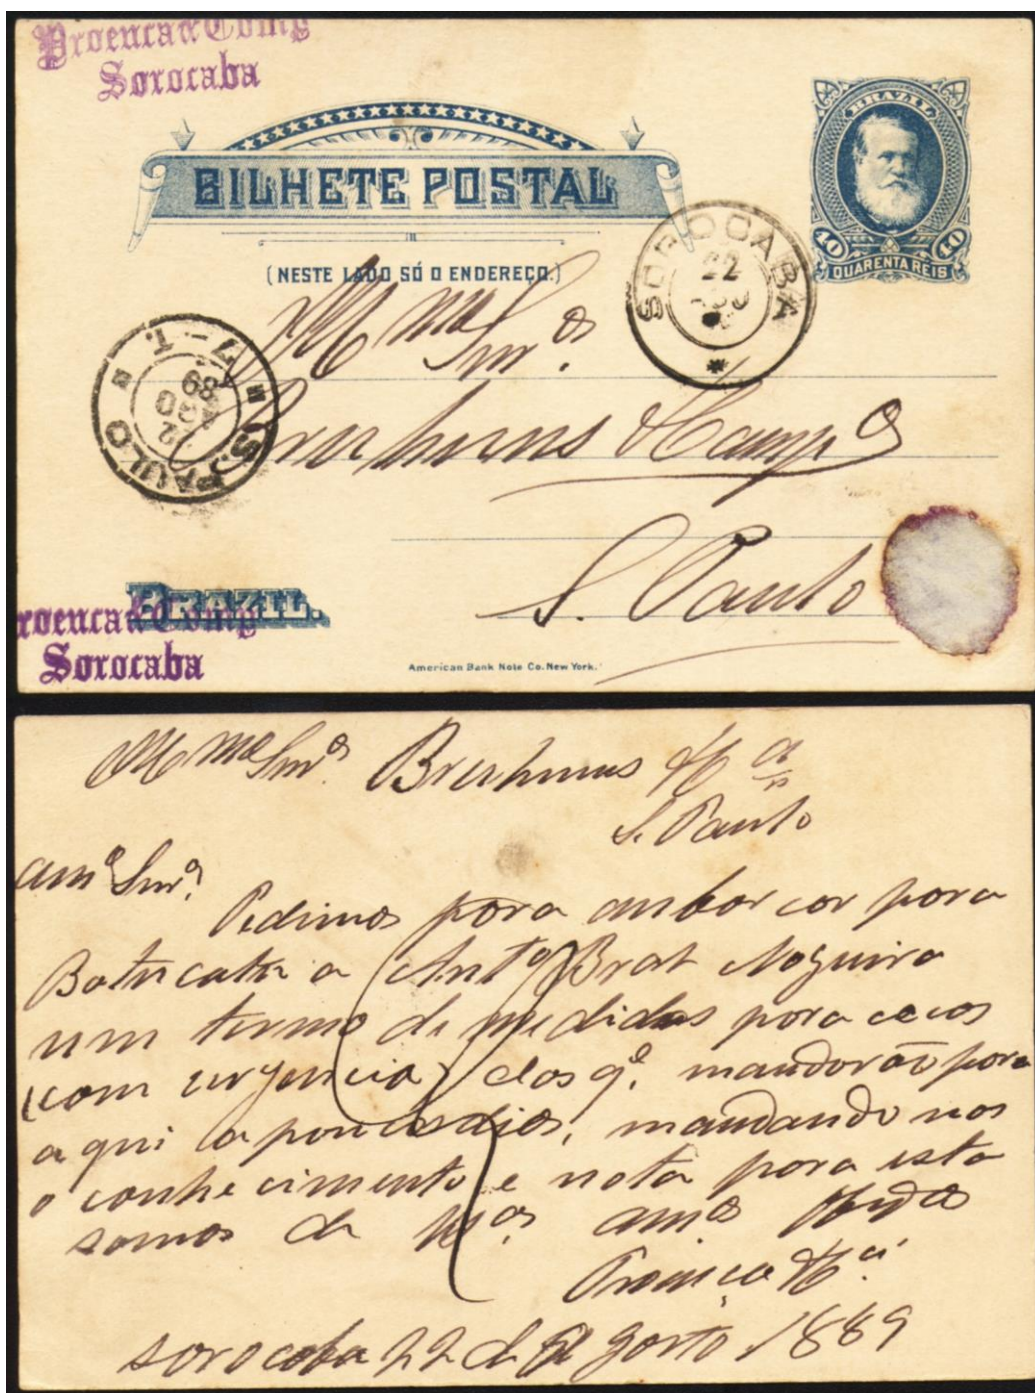 Proenca & Comp
Sorocaba
BRAZIL
40 40
QUARENTA RÉIS
BILHETE POSTAL
(NESTE LADO SÓ O ENDEREÇO.)
SOROCABA
22
*
S. PAULO
7-T
89
Ill mos Snr.es
& Comp a
S. Paulo
BRAZIL.
Proenca & Comp
Sorocaba
American Bank Note Co. New York.
Ill mos Snr.es & C a
S. Paulo
Am os Snr.es
Pedimos para embarcar para
Botucatu a Ant o Nogueira
um termo de medidas para cecos
(com urgencia) dos q e mandarão para
aqui a poucos dias, mandando nos
o conhecimento e nota para esta
somos de am os
Proença & C a
Sorocaba 22 de Agosto 1889